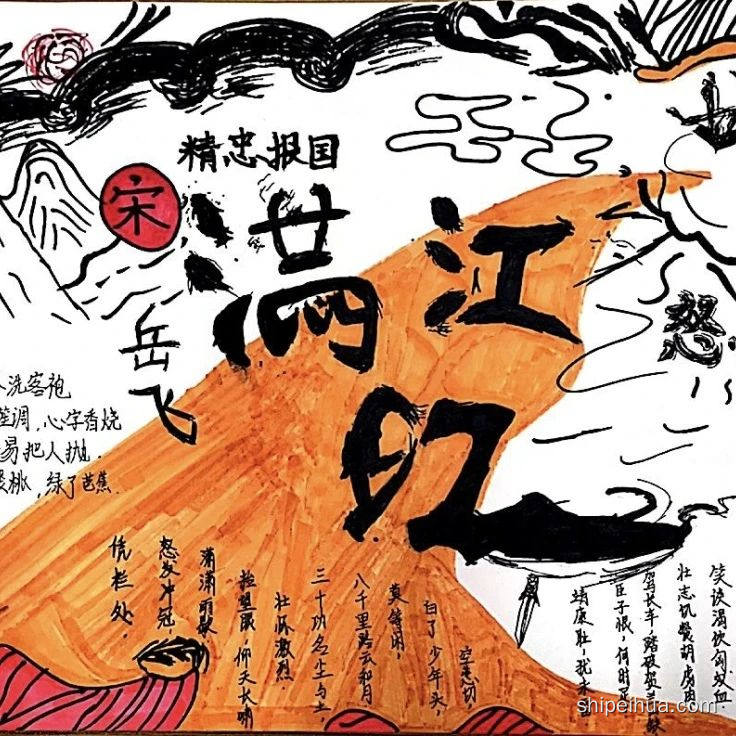 精忠报国
宋
满江红
岳飞
怒
洗客袍
笙调,心字香烧
易把人抛.
桃,绿了芭蕉.
凭栏处、
怒发冲冠,
潇潇雨歇
抬望眼,仰天长啸
壮怀激烈.
三十功名尘与土,
八千里路云和月
莫等闲,
白了少年头,
空悲切.
靖康耻,犹未雪
臣子恨,何时灭
驾长车,踏破贺兰山缺
壮志饥餐胡虏肉
笑谈渴饮匈奴血
shipeihua.com